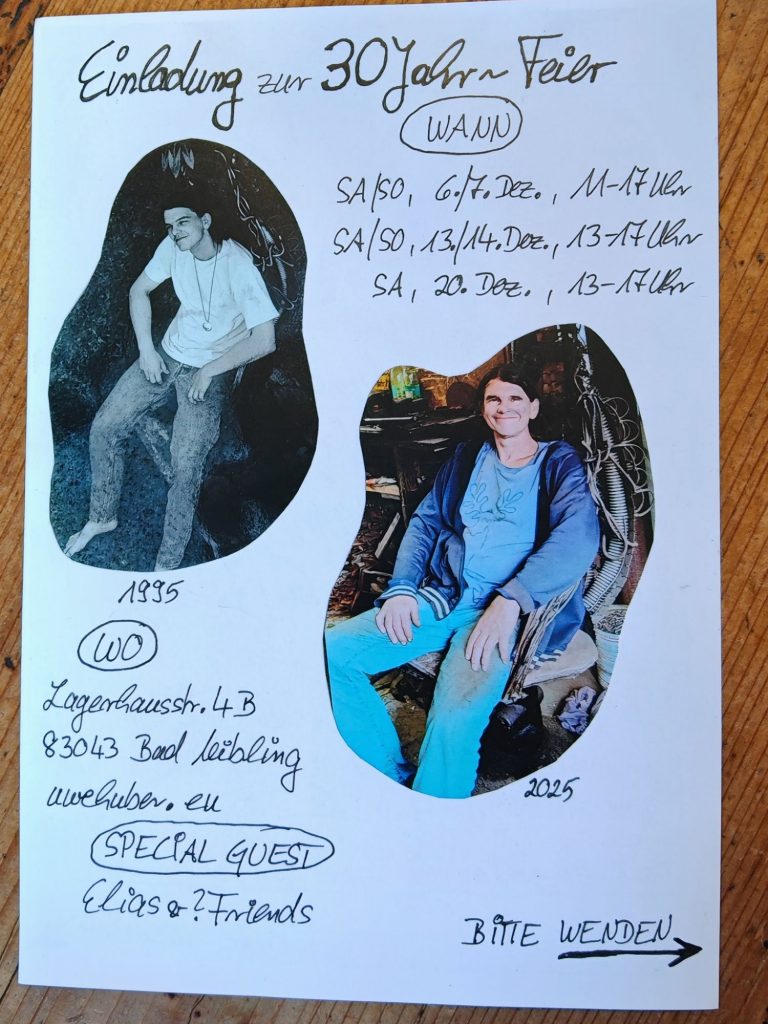 Einladung zur 30 Jahr~ Feier
WANN
SA/SO, 6./7. Dez., 11-17 Uhr
SA/SO, 13./14. Dez., 13-17 Uhr
SA, 20. Dez., 13-17 Uhr
1995
2025
WO
Lagerhausstr. 4B
83043 Bad Aibling
uwehuber.eu
SPECIAL GUEST
Elias & ? Friends
BITTE WENDEN